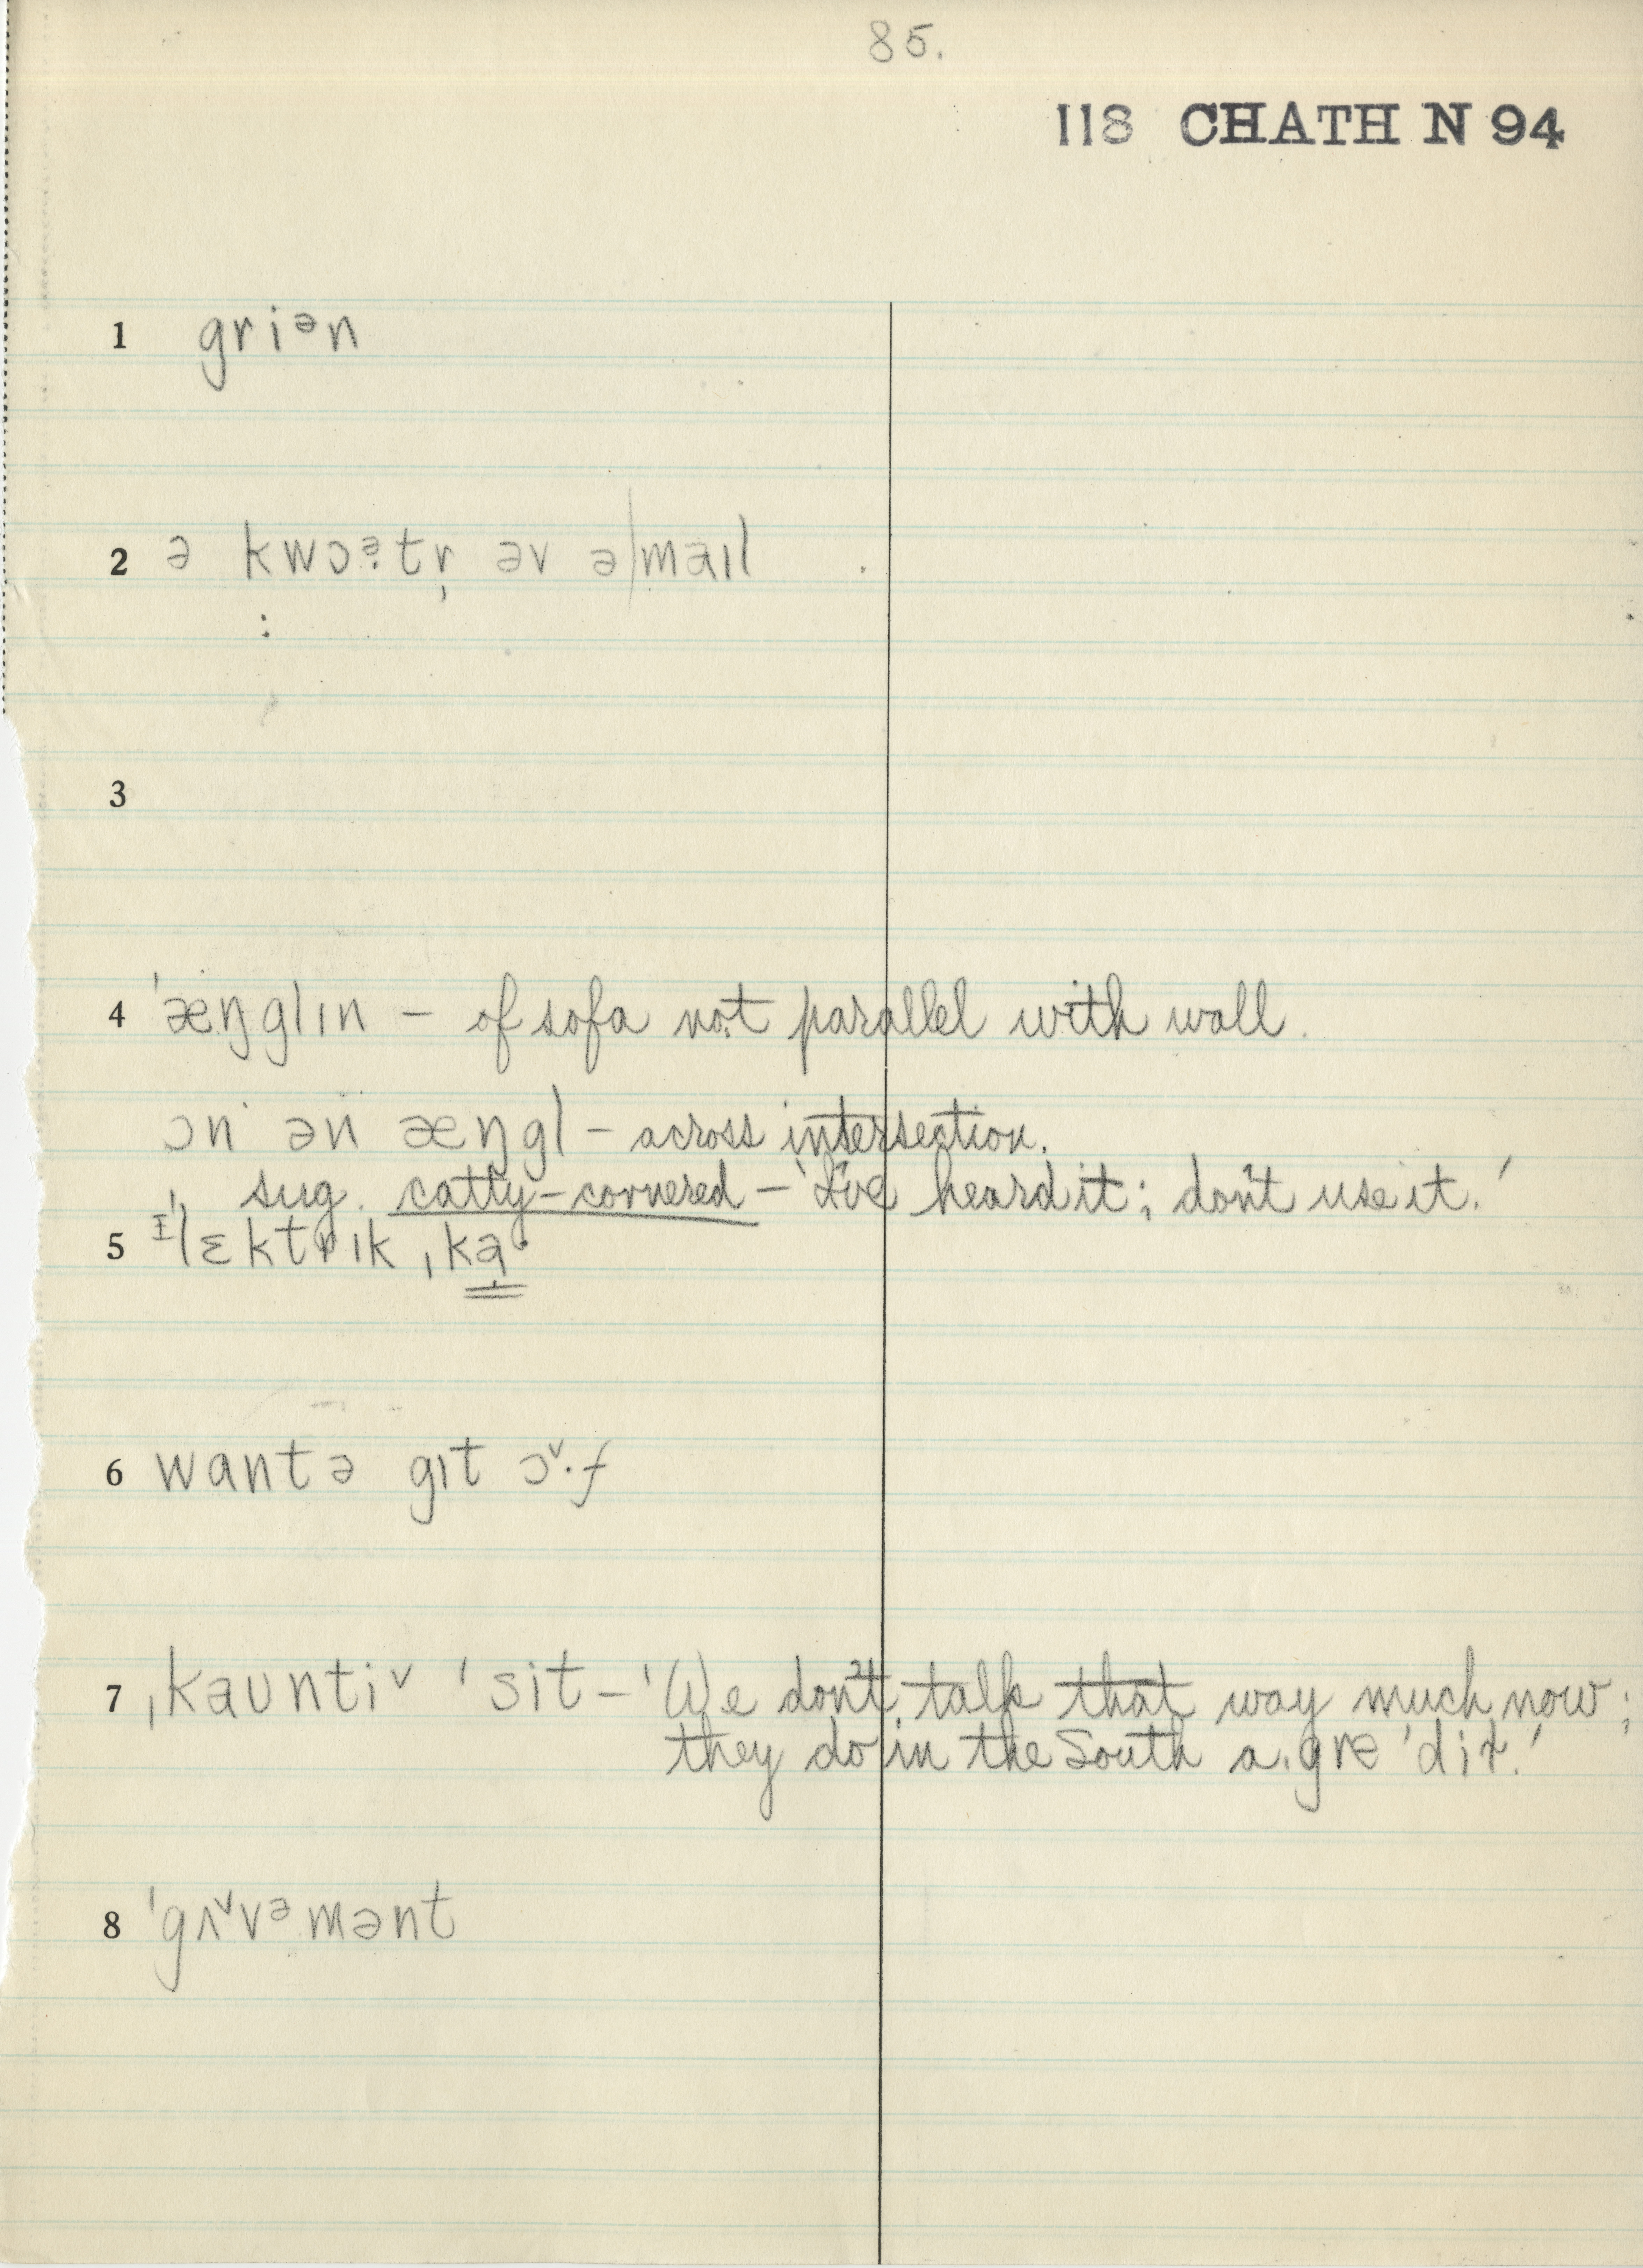 85.
118 CHATH N 94
1 griᵊn
2 ə kwɔᵊ̣tr̩ əv ə|maɪl
3
4 ˈæŋglɪn – of sofa not parallel with wall.
ɔn ən æŋgl – across intersection.
sug. catty-cornered – 'I've heard it; don't use it.'
5 ɪˈlɛktrɪk ˌka·
6 wantə gɪt ɔˇ·f
7 ˌkauntiˇ ˈsit – 'We don't talk that way much now;
they do in the South
8 ˈgʌˇvᵊmənt